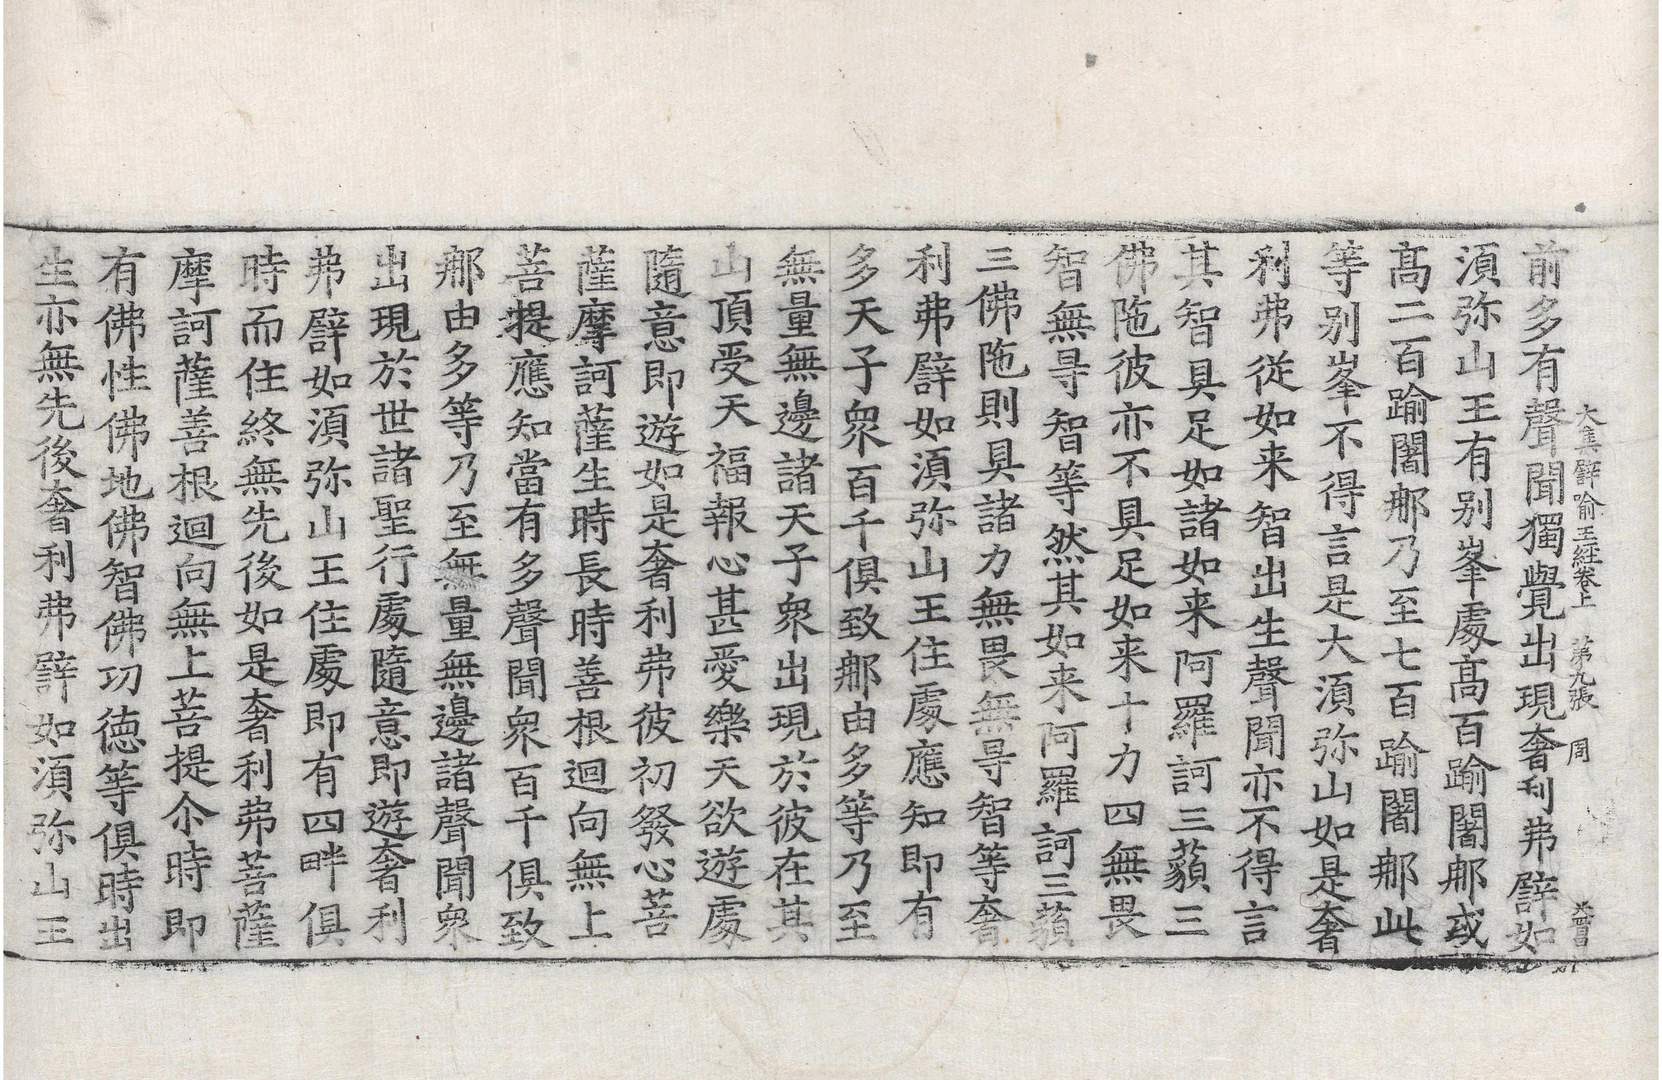 大集譬喻王經卷上 第九張 周
前多有聲聞獨覺出現奢利弗譬如
須弥山王有别峯處髙百踰闍那或
髙二百踰闍那乃至七百踰闍那此
等别峯不得言是大須弥山如是奢
利弗從如来智出生聲聞亦不得言
其智具足如諸如来阿羅訶三藐三
佛陁彼亦不具足如来十力四無畏
智無㝵智等然其如来阿羅訶三藐
三佛陁則具諸力無畏無㝵智等奢
利弗譬如須弥山王住處應知即有
多天子衆百千俱致那由多等乃至
無量無邊諸天子衆出現於彼在其
山頂受天福報心甚愛樂天欲遊處
隨意即遊如是奢利弗彼初發心菩
薩摩訶薩生時長時善根迴向無上
菩提應知當有多聲聞衆百千俱致
那由多等乃至無量無邊諸聲聞衆
出現於世諸聖行處隨意即遊奢利
弗譬如須弥山王住處即有四畔俱
時而住終無先後如是奢利弗菩薩
摩訶薩善根迴向無上菩提尒時即
有佛性佛地佛智佛功徳等俱時出
生亦無先後奢利弗譬如須弥山王